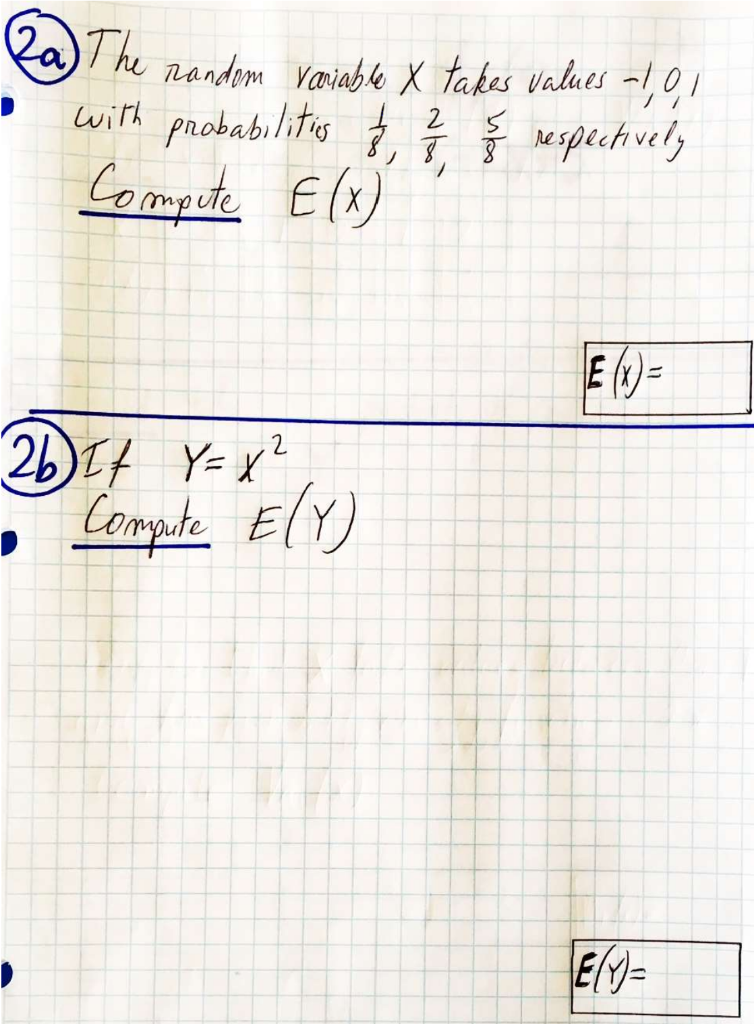 2a The random variable X takes values -1, 0, 1
with probabilities 1/8, 2/8, 5/8 respectively
Compute E(X)
E(X)=
2b If Y= X²
Compute E(Y)
E(Y)=